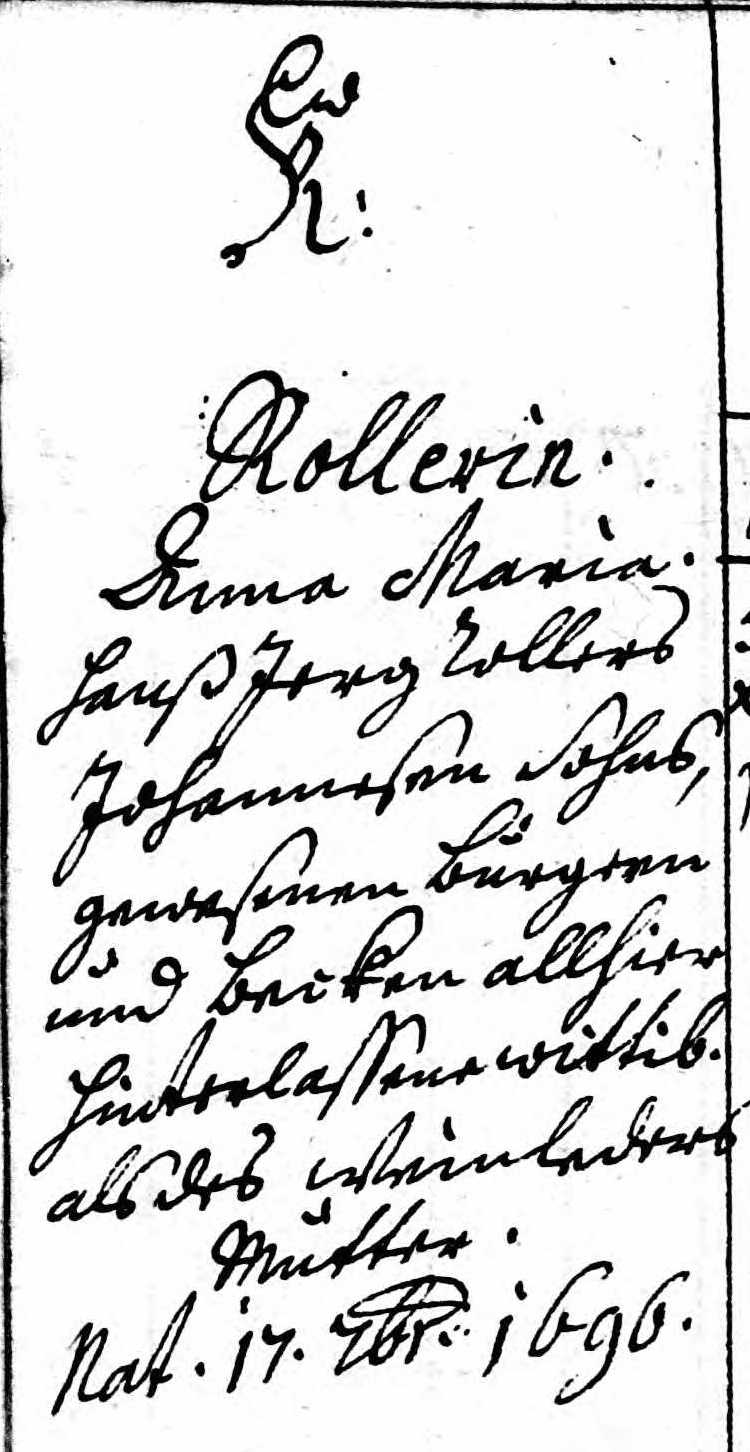 Rollerin.
Anna Maria.
Hanß Jerg Rollers
Johannesen Sohns,
gewesenen Burgern
und Becken allhier
hinterlassene Wittib.
als des Weinladers
Mutter.
Nat. 17. 7br. 1696.